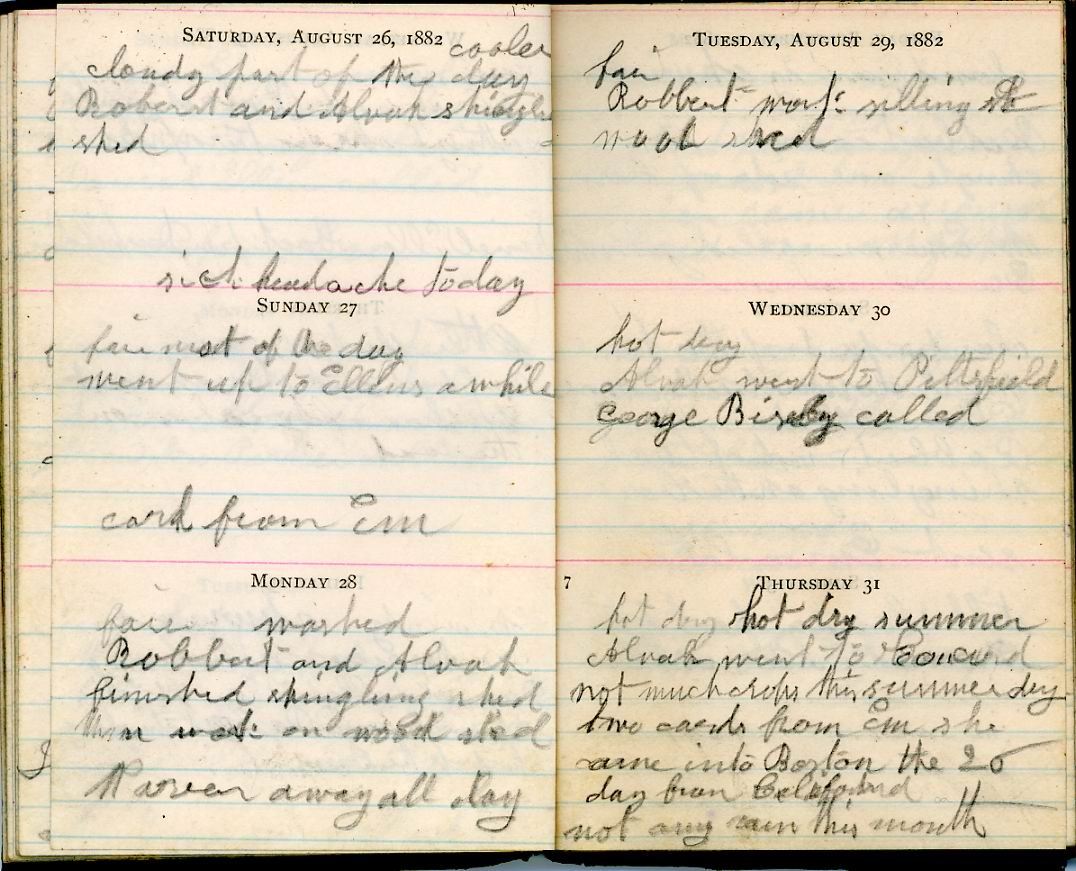 SATURDAY, AUGUST 26, 1882
cooler
cloudy part of the day
Robert and Alvah shingle
shed
sick headache today
SUNDAY 27
fair most of the day
went up to Ellens a while
card from Em
MONDAY 28
fair washed
Robbert and Alvah
finished shingling shed
then work on wood shed
away all day
TUESDAY, AUGUST 29, 1882
fair
Robbert work silling
wood shed
WEDNESDAY 30
hot day
Alvah went to Pittsfield
George Bixby called
7
THURSDAY 31
hot dry hot dry summer
Alvah went to
not much crops this summer dry
two cards from Em she
came into Boston the 26
day from
not any rain this month